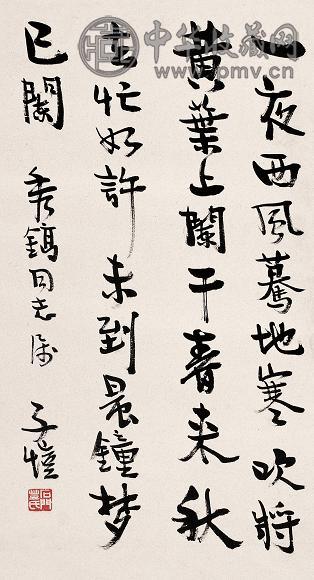 中华收藏网
www.pmv.cn
一夜西風驀地寒吹将
黄葉上闌干春来秋
去忙如許未到晨鐘梦
已闌 同志属 子愷
石門豐氏